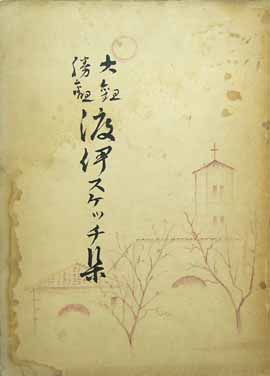 大観
勝観
渡伊スケッチ集